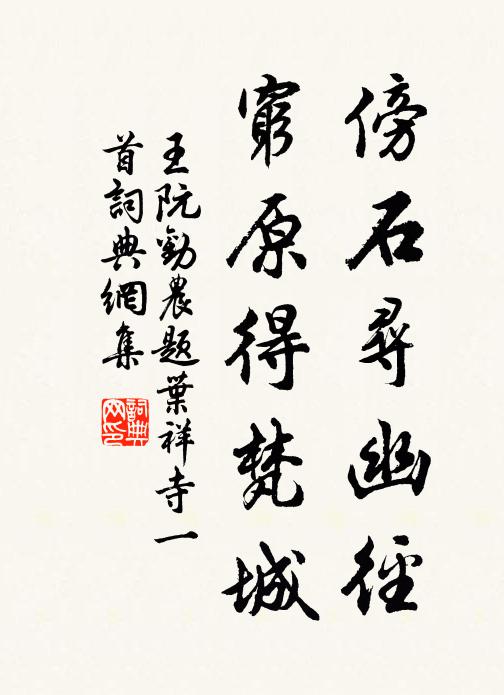 傍石尋幽徑
窮原得梵城
王阮勸農題葉祥寺一
首詞典網集
詞典
网印